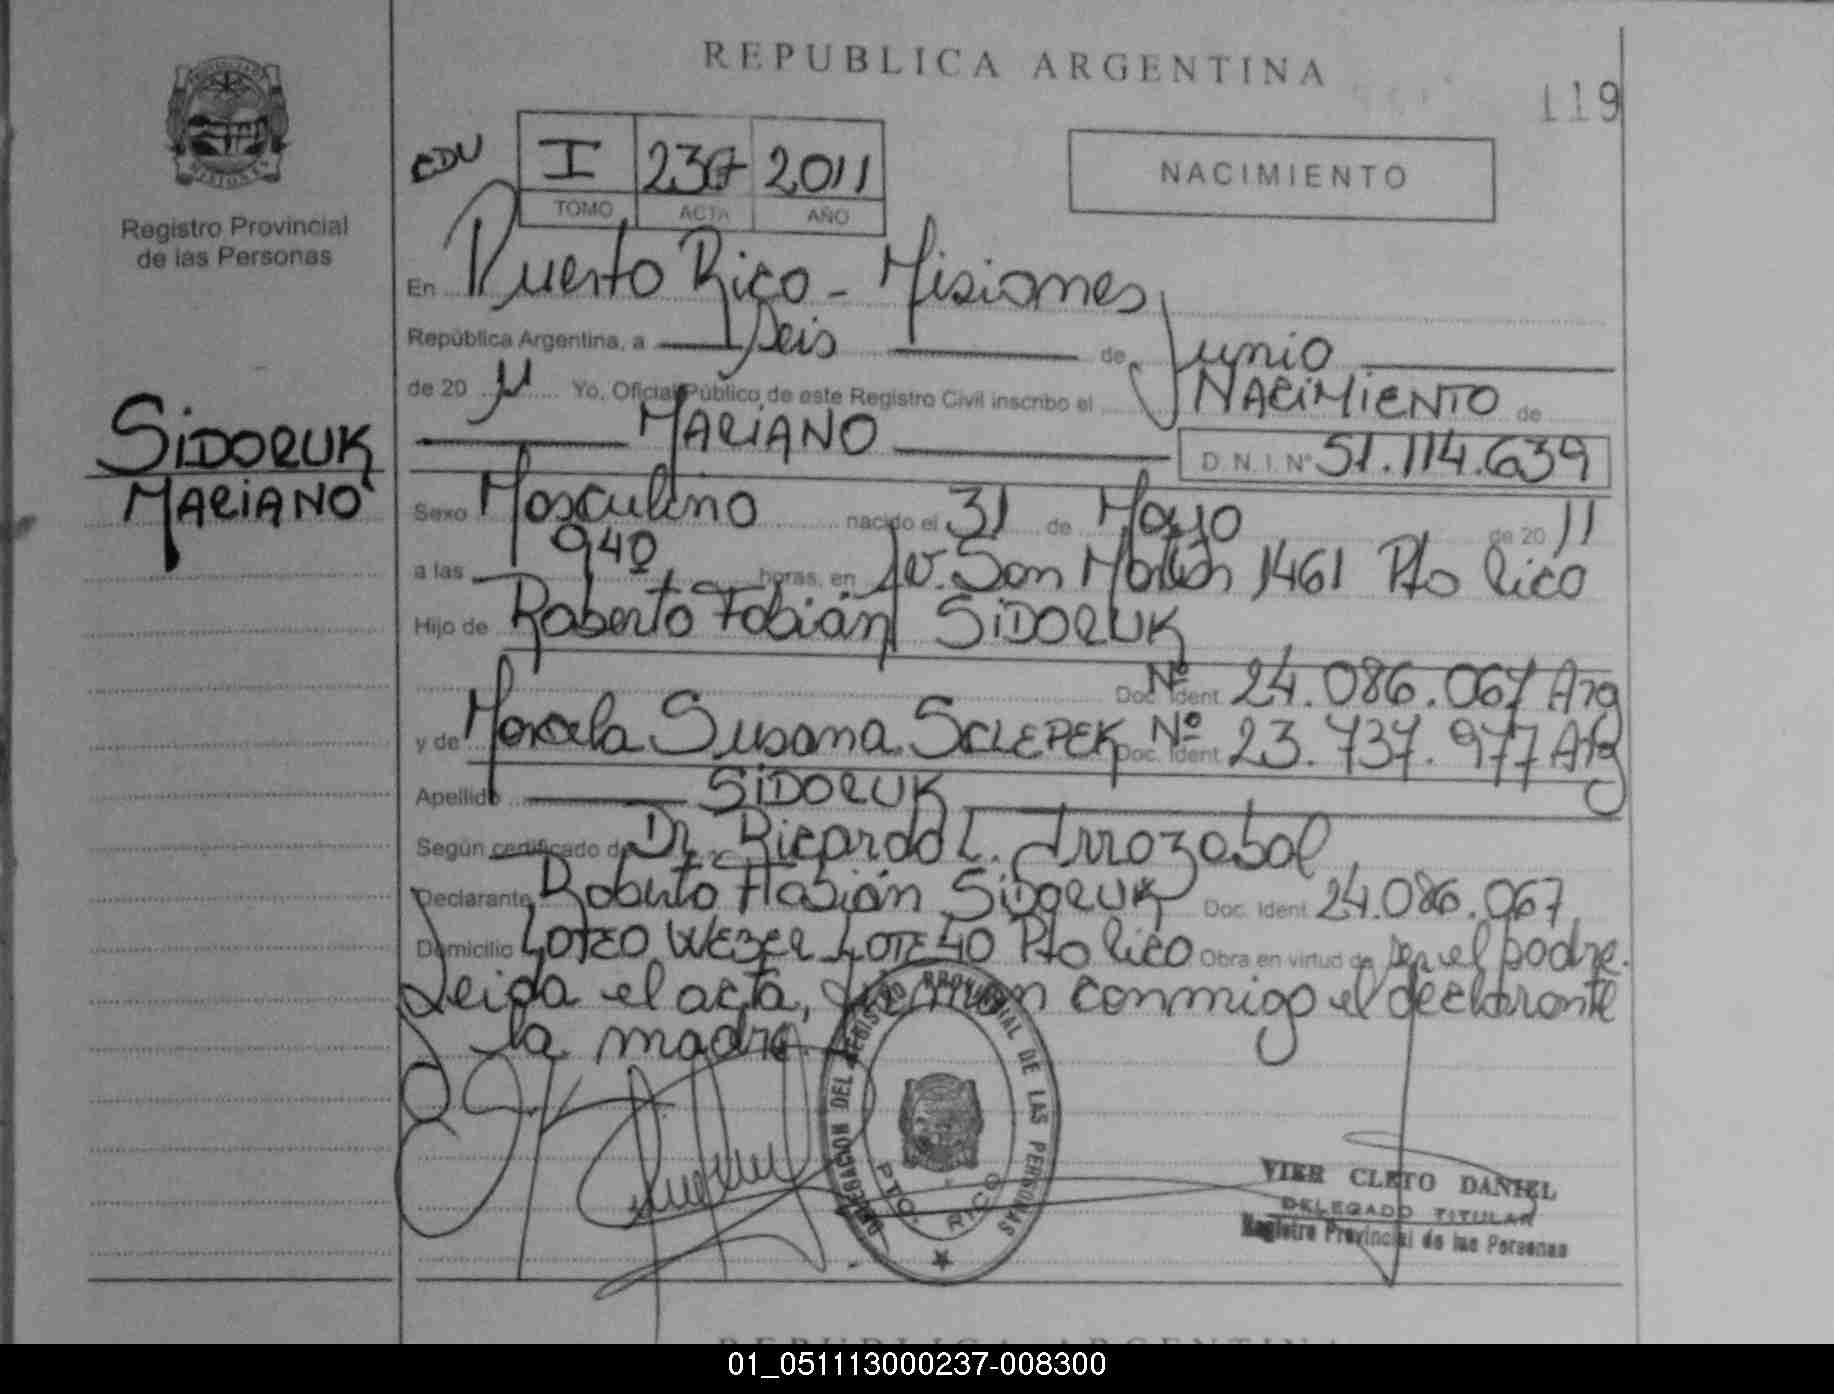 REPUBLICA ARGENTINA
119
CDU
I 237 2011
TOMO ACTA AÑO
NACIMIENTO
Registro Provincial
de las Personas
SIDORUK
MARIANO
En Puerto Rico - Misiones
República Argentina, a Seis de Junio
de 20 11 Yo, Oficial Público de este Registro Civil inscribo el NACIMIENTO de
MARIANO D.N.I. Nº 51.114.639
Sexo Masculino nacido el 31 de Mayo de 2011
a las 940 horas, en Av. San Martín 1461 Pto Rico
Hijo de Roberto Fabián SIDORUK
Doc. Ident Nº 24.086.067 Arg
y de Marcela Susana SCLEPEK Doc. Ident Nº 23.737.977 Arg
Apellido SIDORUK
Según certificado de Dr. Ricardo L. Irrozabal
Declarante Roberto Fabián SIDORUK Doc. Ident 24.086.067
Domicilio LOTEO WEBER LOTE 40 Pto Rico Obra en virtud de ser el padre.
Leida el acta, firman conmigo el declarante
la madre.
DELEGACION DEL REGISTRO PROVINCIAL DE LAS PERSONAS
PTO. RICO
VIER CLETO DANIEL
DELEGADO TITULAR
Registro Provincial de las Personas
REPUBLICA ARGENTINA
01_051113000237-008300